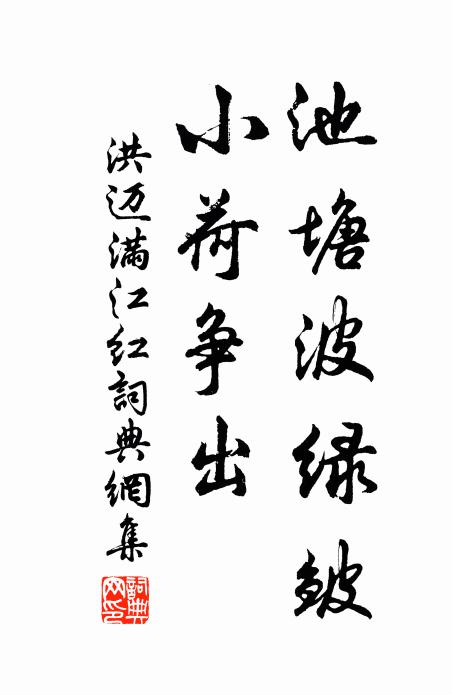 池塘波绿皱
小荷争出
洪迈满江红詞典網集
詞典網印